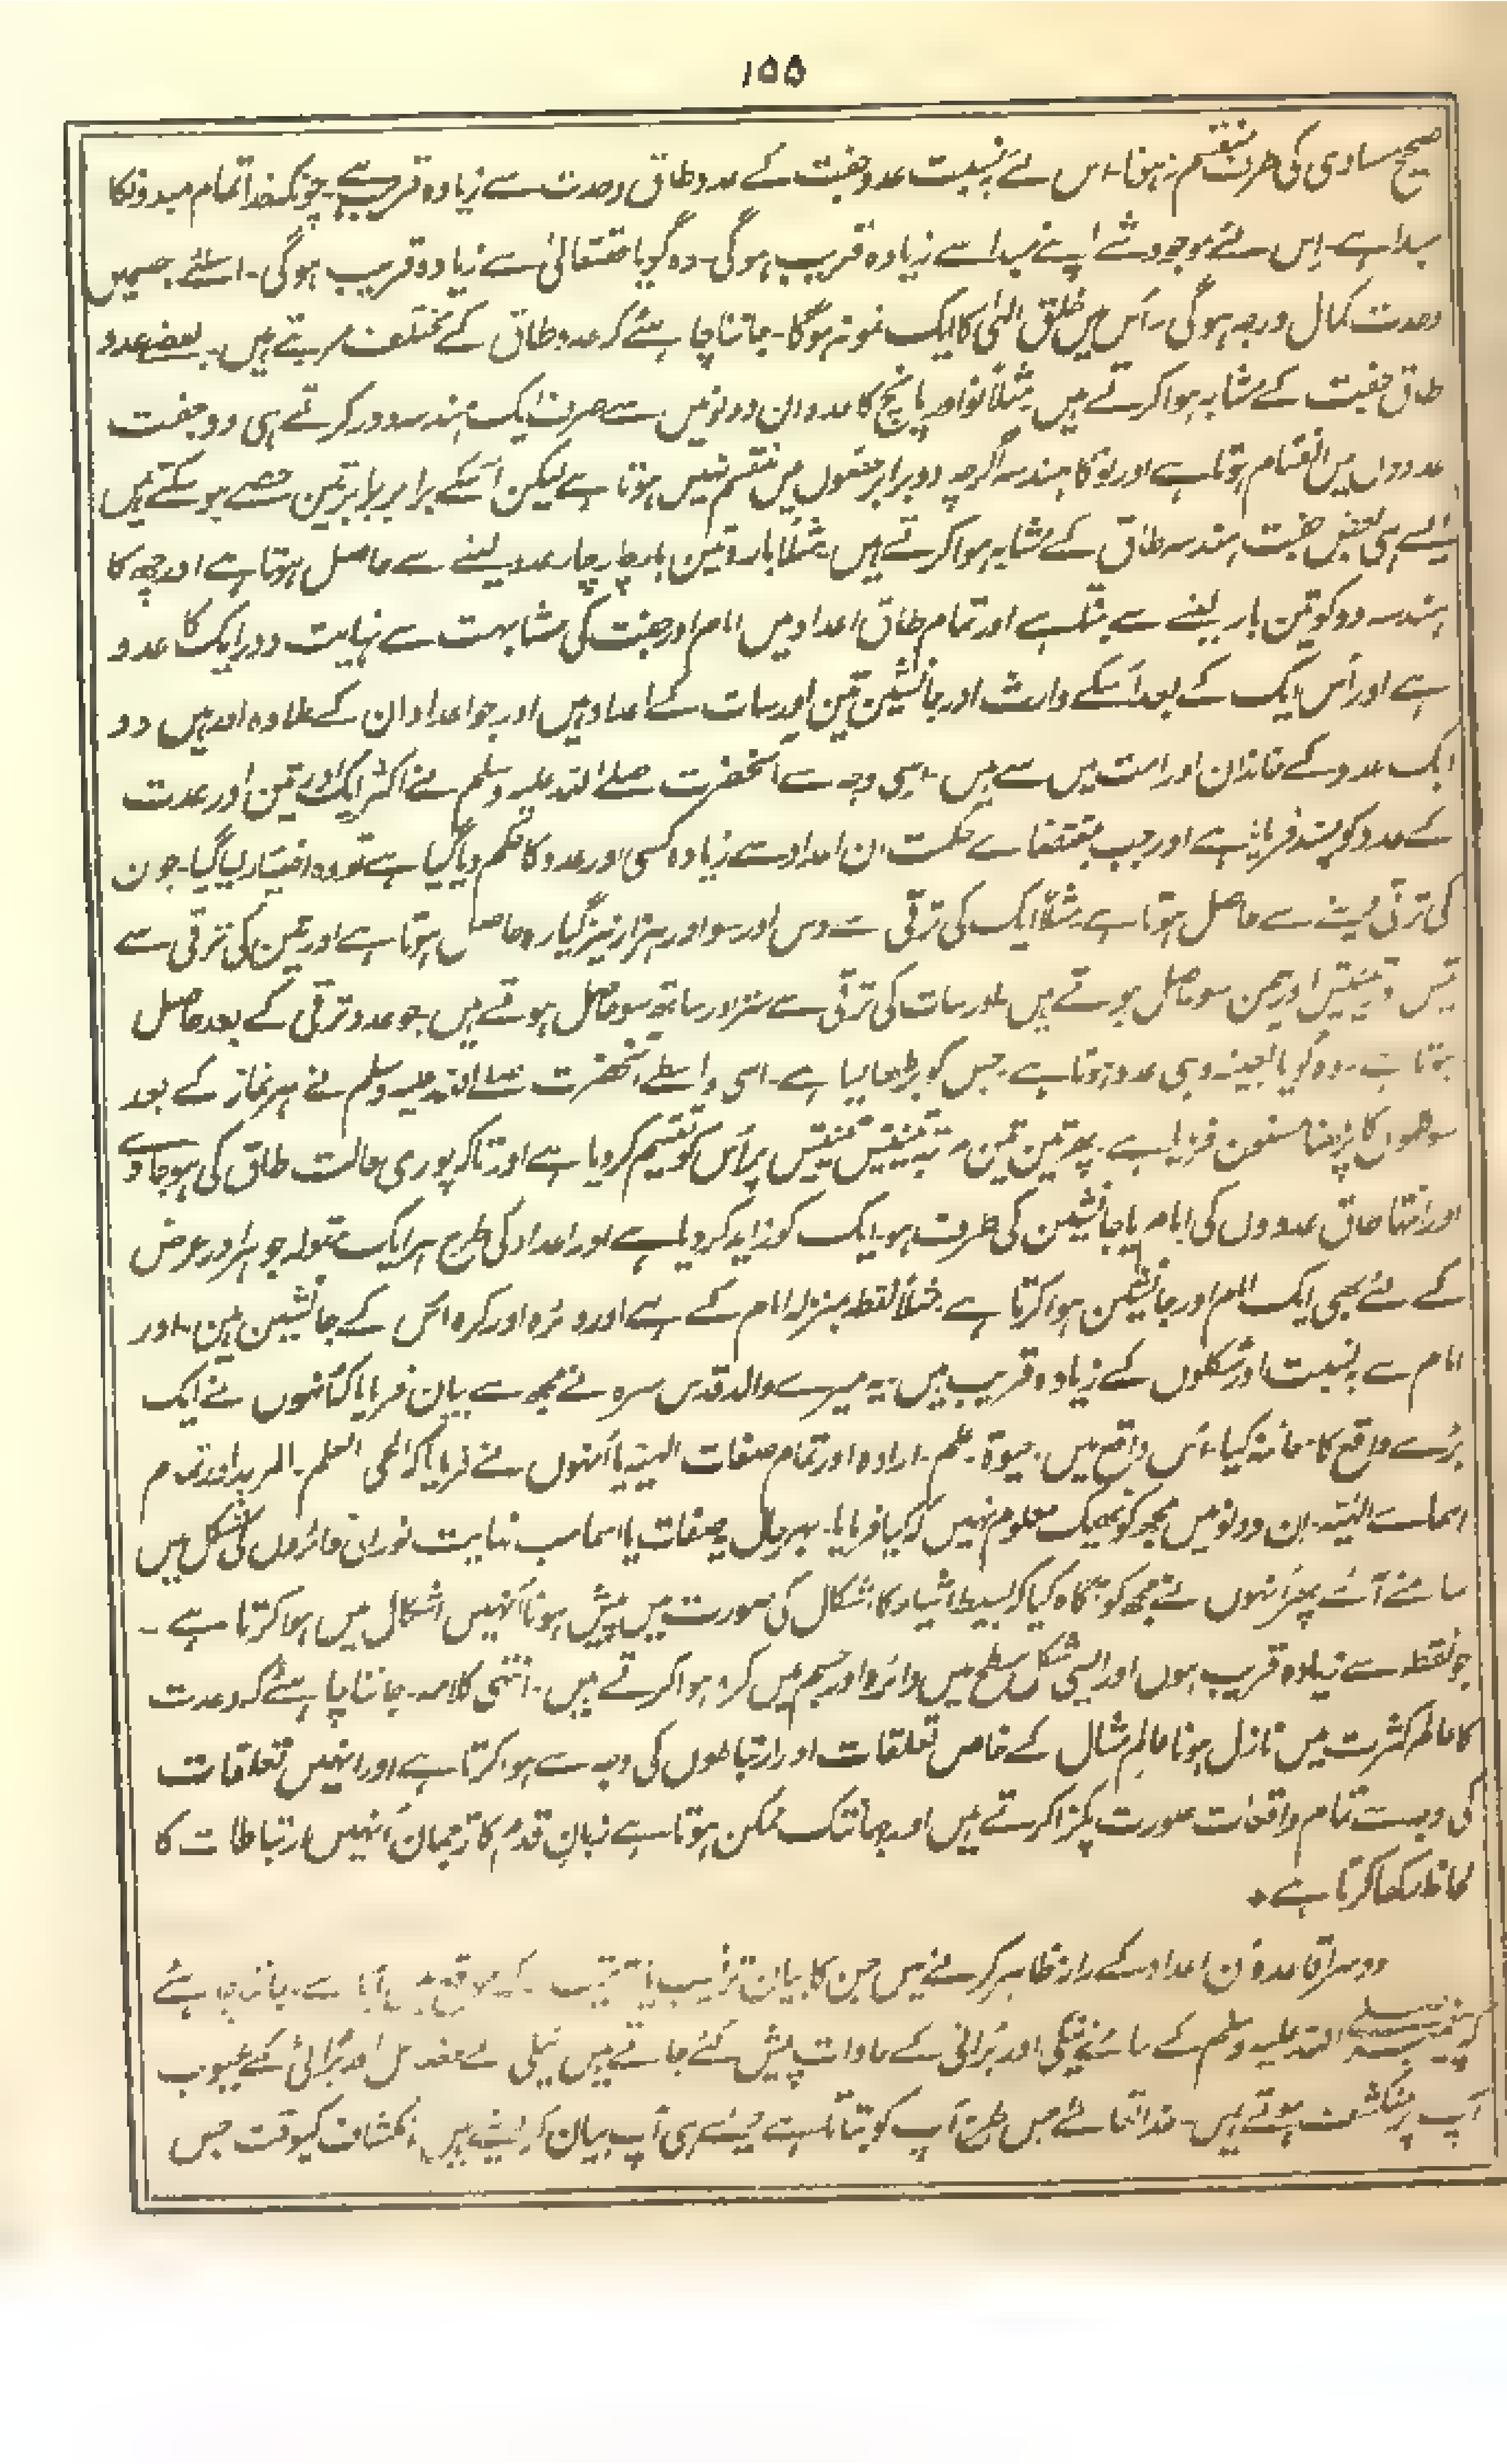 ۱۵۵
صحیح مساوی کی طرف منقسم نہ ہونا۔ اس لئے بہ نسبت عدد جفت کے عدد طاق وحدت سے زیادہ قریب ہے۔ چونکہ خدا تمام مبدوں کا
مبدا ہے۔ اس لئے جو جو شے اپنے مبدا سے زیادہ قریب ہوگی۔ وہ گویا حقتعالیٰ سے زیادہ قریب ہوگی۔ اسلئے جسمیں
وحدت کمال درجہ ہوگی اُس میں خلق الٰہی کا ایک نمونہ ہوگا۔ جاننا چاہئے کہ عدد طاق کے مختلف مرتبے ہیں۔ بعض عدد
طاق جفت کے مشابہ ہوا کرتے ہیں مثلاً نو اور پانچ کا عدد ان دونوں میں سے صرف ایک ہندسہ دور کرتے ہی دو جفت
عددوں میں انقسام ہوتا ہے اور نو کا ہندسہ اگرچہ دو برابر حصوں میں منقسم نہیں ہوتا ہے لیکن اُسکے برابر برابر تین حصے ہو سکتے ہیں
ایسے ہی بعض جفت ہندسہ طاق کے مشابہ ہوا کرتے ہیں۔ مثلاً بارہ تین بار چار چار عدد لینے سے حاصل ہوتا ہے اور چھ کا
ہندسہ دو کو تین بار لینے سے بنتا ہے اور تمام طاق اعداد میں امام اور جفت کی مشابہت سے نہایت دور ایک کا عدد
ہے اور اُس ایک کے بعد اُسکے وارث اور جانشین تین اور سات کے اعداد ہیں اور جو اعداد ان کے علاوہ اور ہیں وہ
ایک عدد کے خاندان اور امت میں سے ہیں۔ اسی وجہ سے آنحضرت صلے اللہ علیہ وسلم نے اکثر ایک اور تین اور سات
کے عدد کو پسند فرمایا ہے اور جب بمقتضائے حکمت ان اعداد سے زیادہ کسی اور عدد کا حکم دیا گیا ہے تو وہ اختیار کیا گیا۔ جو ان
کی ترقی دینے سے حاصل ہوتا ہے مثلاً ایک کی ترقی سے دس اور سو اور ہزار نیز گیارہ حاصل ہوتا ہے اور تین کی ترقی سے
تیس و تینتیس اور تین سو حاصل ہوتے ہیں اور سات کی ترقی سے ستر اور سات سو حاصل ہوتے ہیں جو عدد ترقی کے بعد حاصل
ہوتا ہے۔ وہ گویا بعینہ وہی عدد ہوتا ہے۔ جس کو بڑھا لیا ہے۔ اسی واسطے آنحضرت صلے اللہ علیہ وسلم نے ہر نماز کے بعد
سو کلموں کا پڑھنا مسنون فرمایا ہے۔ پھر تین تین مرتبہ تینتیس تینتیس پر اُس کو تقسیم کر دیا ہے اور تاکہ پوری حالت طاق کی ہو جاوے
اور انتہا طاق عددوں کی امام یا جانشین کی طرف ہو۔ ایک کو زاید کر دیا ہے اور اعداد کی طرح ہر ایک مقولہ جوہر اور عرض
کے لئے بھی ایک امام اور جانشین ہوا کرتا ہے۔ مثلاً نقطہ بمنزلہ امام کے ہے اور دائرہ اور کرہ اُس کے جانشین ہیں۔ اور
امام سے بہ نسبت اور شکلوں کے زیادہ قریب ہیں۔ یہ میرے والد قدس سرہ نے مجھ سے بیان فرمایا کہ اُنہوں نے ایک
بڑے واقع کا معائنہ کیا۔ اُس واقع میں۔ حیوۃ۔ علم۔ ارادہ اور تمام صفات الٰہیہ یا اُنہوں نے فرمایا کہ الحی العلیم۔ المرید اور تمام
اسمائے الٰہیہ۔ ان دونوں میں مجھ کو ٹھیک معلوم نہیں کہ کیا فرمایا۔ بہرحال یہ صفات یا اسما سب نہایت نورانی دائروں کی شکل میں
سامنے آئے پھر اُنہوں نے مجھ کو آگاہ کیا کہ بسیط اشیاء کا اشکال کی صورت میں پیش ہونا اُنہیں اشکال میں ہوا کرتا ہے۔
جو نقطہ سے زیادہ قریب ہوں اور ایسی شکل سطح میں دائرہ اور جسم میں کرہ ہوا کرتے ہیں۔ انتہٰی کلامہ۔ جاننا چاہئے کہ وحدت
کا عالم کثرت میں نازل ہونا عالم مثال کے خاص تعلقات اور ارتباطوں کی وجہ سے ہوا کرتا ہے اور انہیں تعلقات
کی وجہ سے تمام واقعات صورت پکڑا کرتے ہیں اور جہانتک ممکن ہوتا ہے زبان قدم کا ترجمان اُنہیں ارتباطات کا
لحاظ رکھا کرتا ہے٭
دوسرا قاعدہ ان اعداد کے راز ظاہر کرنے میں جن کا بیان ترغیب یا ترہیب کے موقع میں آیا ہے۔ جاننا چاہئے
کہ پیغمبر صلے اللہ علیہ وسلم کے سامنے نیکی اور برائی کے عادات پیش کئے جاتے ہیں نیکی کے فضائل اور برائی کے عیوب
آپ پر منکشف ہوتے ہیں۔ خدا تعالےٰ جس طرح آپ کو بتاتا ہے ویسے ہی آپ بیان کر دیتے ہیں انکشاف کیوقت جس